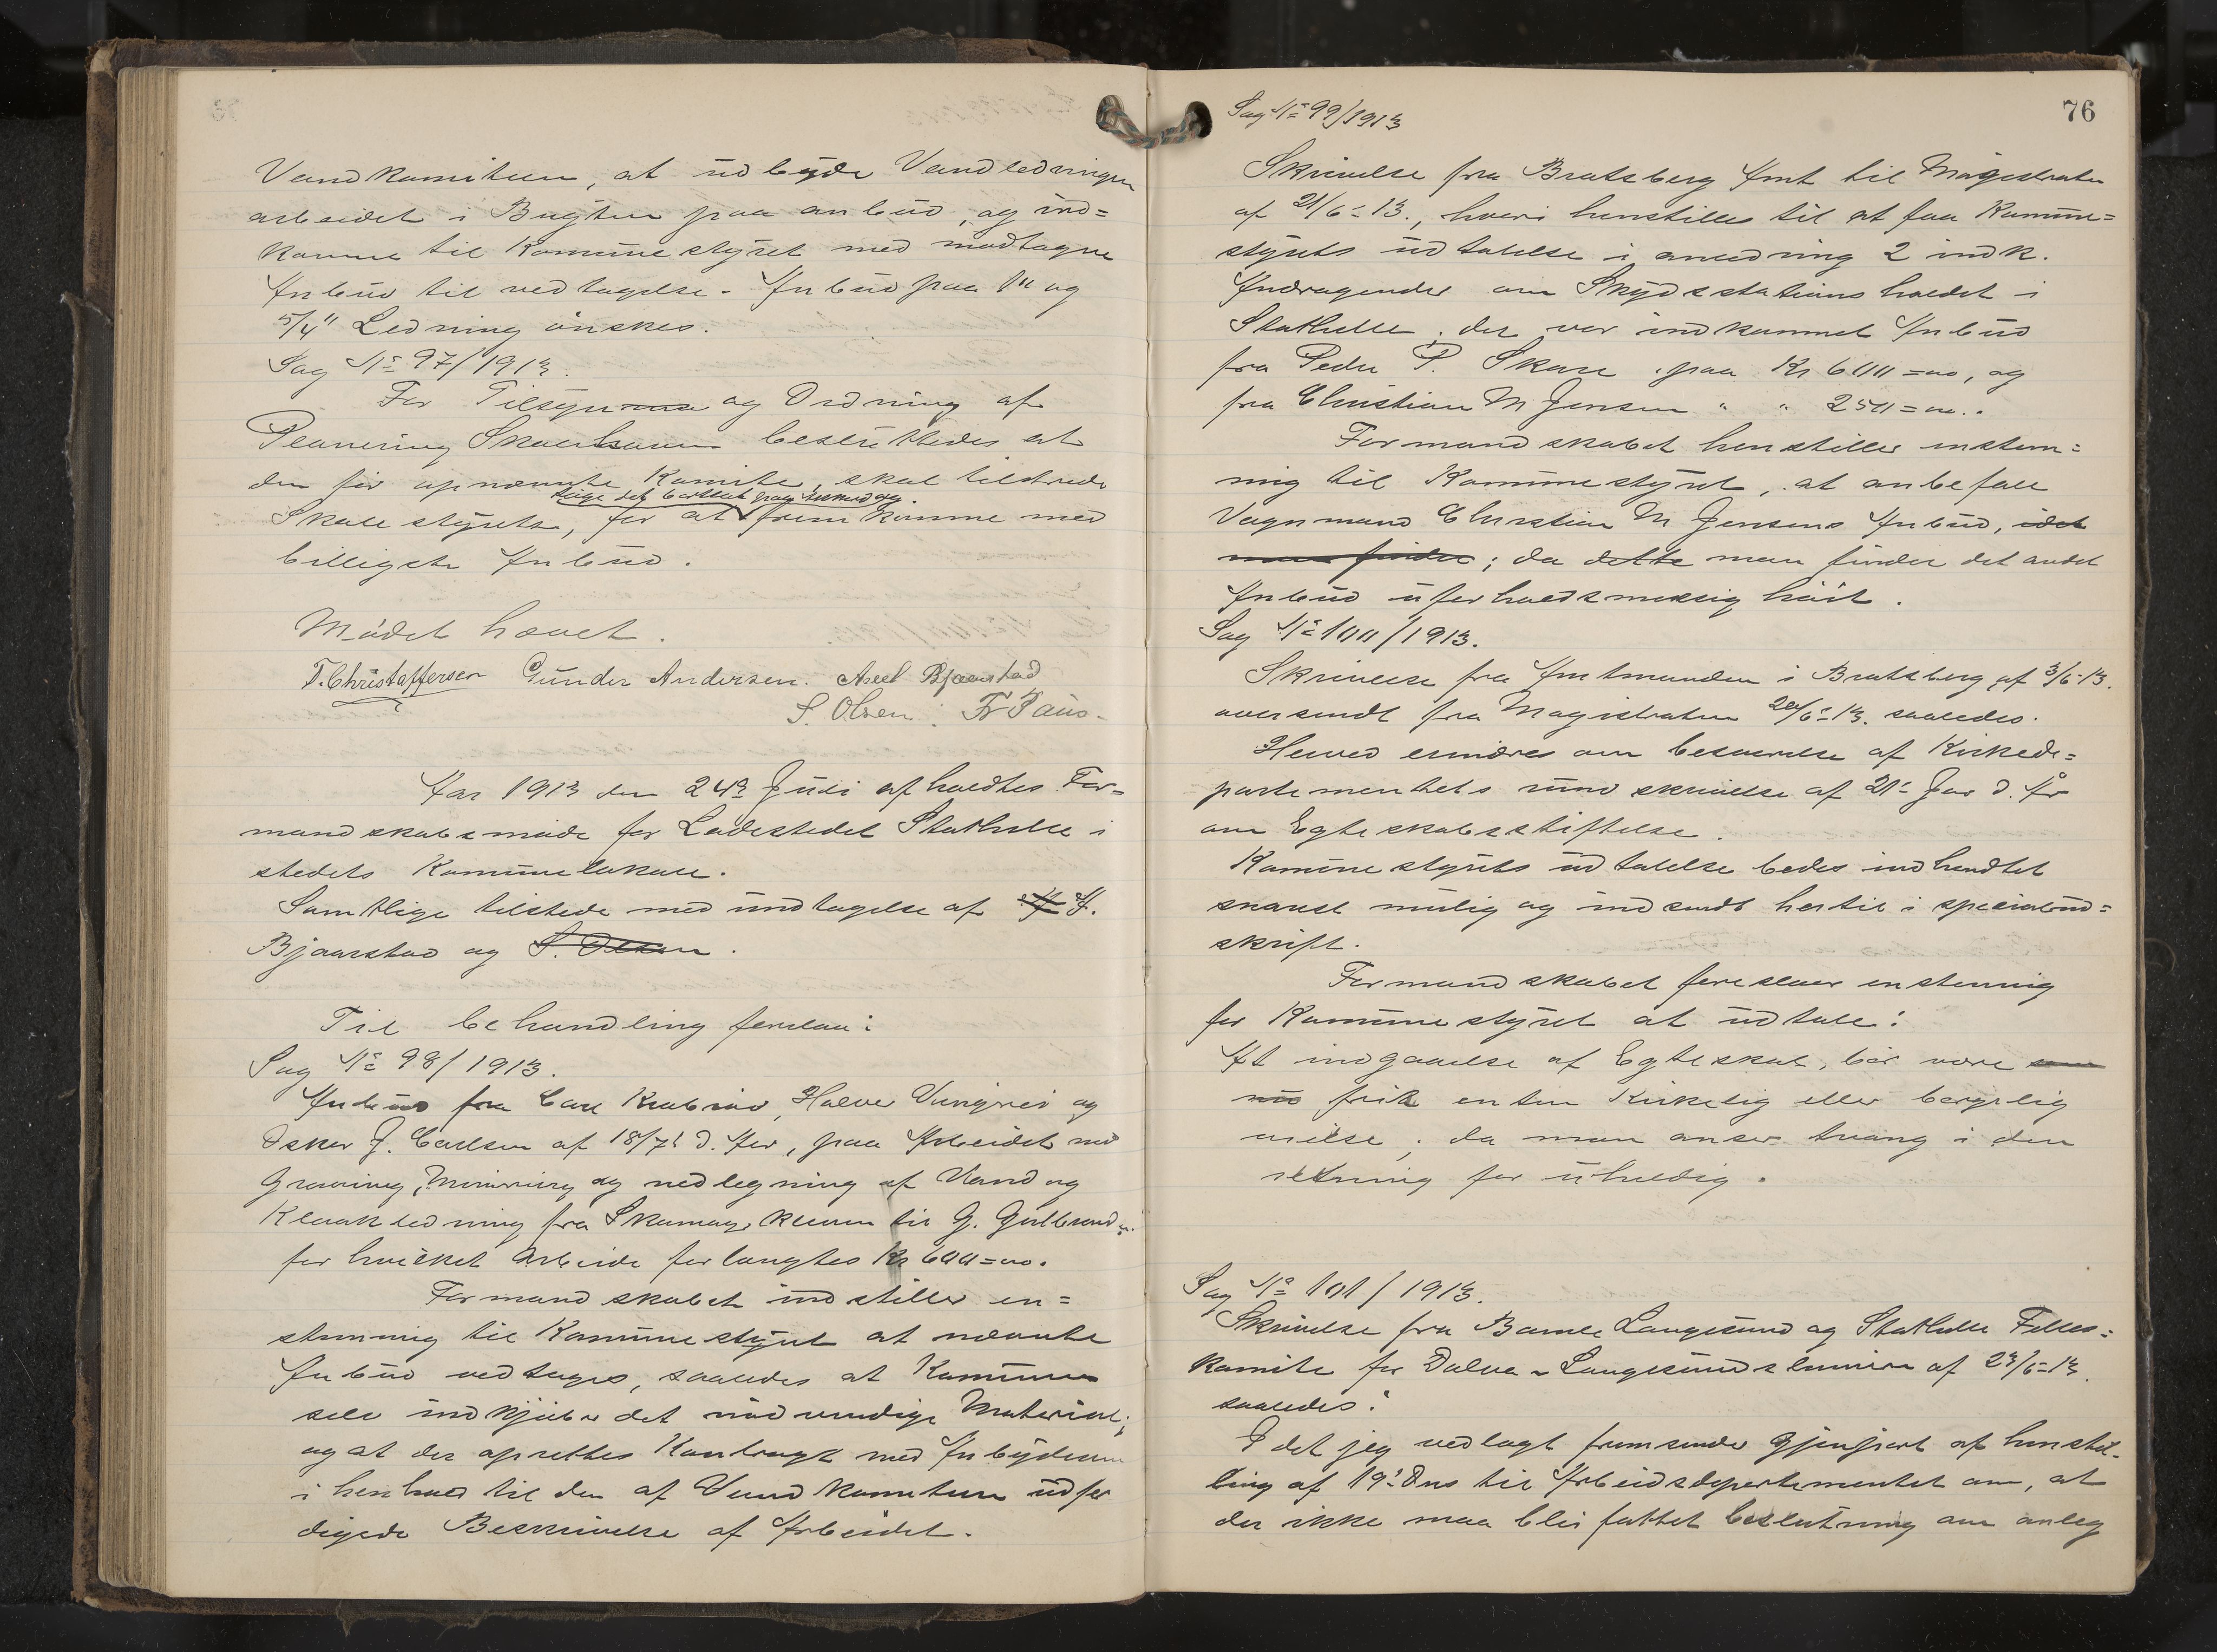 Vandkomiteen, at udbyde Vandlednings
arbeidet i Bugten paa anbud, og ind=
komme til Kommunestyret med modtagne
Anbud til vedtagelse. Anbud paa 1" og
5/4" Ledning ønskes.
Sag No 97/1913.
For Tilsyn og Ordning af
Planering besluttedes at
den før opnævnte Komite, skal tiltræde
Skolestyrets, for at fremkomme med
billigste Anbud.
Mødet hævet.
T. Christoffersen Gunder Andersen. Axel Bjaarstad
S. Olsen. Fr Paus.
Aar 1913 den 24de Juni afholdtes For=
mandskabsmøde for Ladestedet Stathelle i
stedets Kommunelokale.
Samtlige tilstede med undtagelse af A.
Bjaarstad og S. Olsen.
Til behandling forelaa:
Sag No 98/1913.
Anbud fra Carl Krabrød, Halvor og
Oskar J. Carlsen af 18/7 d. Aar, paa Arbeidet med
Gravning, Minering og nedlegning af Vand og
Kloakledning fra til G. Gulbrands.
for hvilket Arbeide forlangtes Kr 600=00.
Formandskabet indstiller en=
stemmig til Kommunestyret at nævnte
Anbud vedtages, saaledes at Kommunen
selv indkjøber det nødvendige Material;
og at der oprettes Kontragt med Anbyderne
i henhold til den af Vandkomiteen udfær
digede Beskrivelse af Arbeidet.
76
Sag No 99/1913
Skrivelse fra Bratsberg Amt til Magistraten
af 21/6-13., hvori henstilles til at faa Kommune=
styrets udtalelse i anledning 2 indk.
Andragender om Skydsstationsholdet i
Stathelle, der var indkommet Anbud
fra Peder P. Skare paa Kr 600=00, og
fra Christian M Jensen " " 250=00.
Formandskabet henstiller enstem=
mig til Kommunestyret, at anbefale
Vognmand Christian M Jensens Anbud, idet
man finder; da dette man finder det andet
Anbud uforholdsmessig høit.
Sag No 100/1913.
Skrivelse fra Amtmanden i Bratsberg af 3/6-13.
oversendt fra Magistraten 20/6-13. saaledes.
Herved erindres om besvarelse af Kirkede=
partementets rundskrivelse af 21- Jan d. År
om Egteskabsstiftelse.
Kommunestyrets udtalelse bedes indhendtet
snarest mulig og indsendt hertil i specialud=
skrift.
Formandskabet foreslaar enstemmig
for Kommunestyret at udtale:
At indgaaelse af Egteskab, bør være som
nu frit enten Kirkelig eller borgerlig
vielse, da man anser tvang i den
retning for uheldig.
Sag No 101/1913.
Skrivelse fra Bamle Langesund og Stathelle Felles=
komite for Dalva - Langesundslinien af 23/6-13.
saaledes:
I det jeg vedlagt fremsender Gjenpart af henstil=
ling af 19- Dns til Arbeidsdepartementet om, at
der ikke maa bli fattet beslutning om anleg